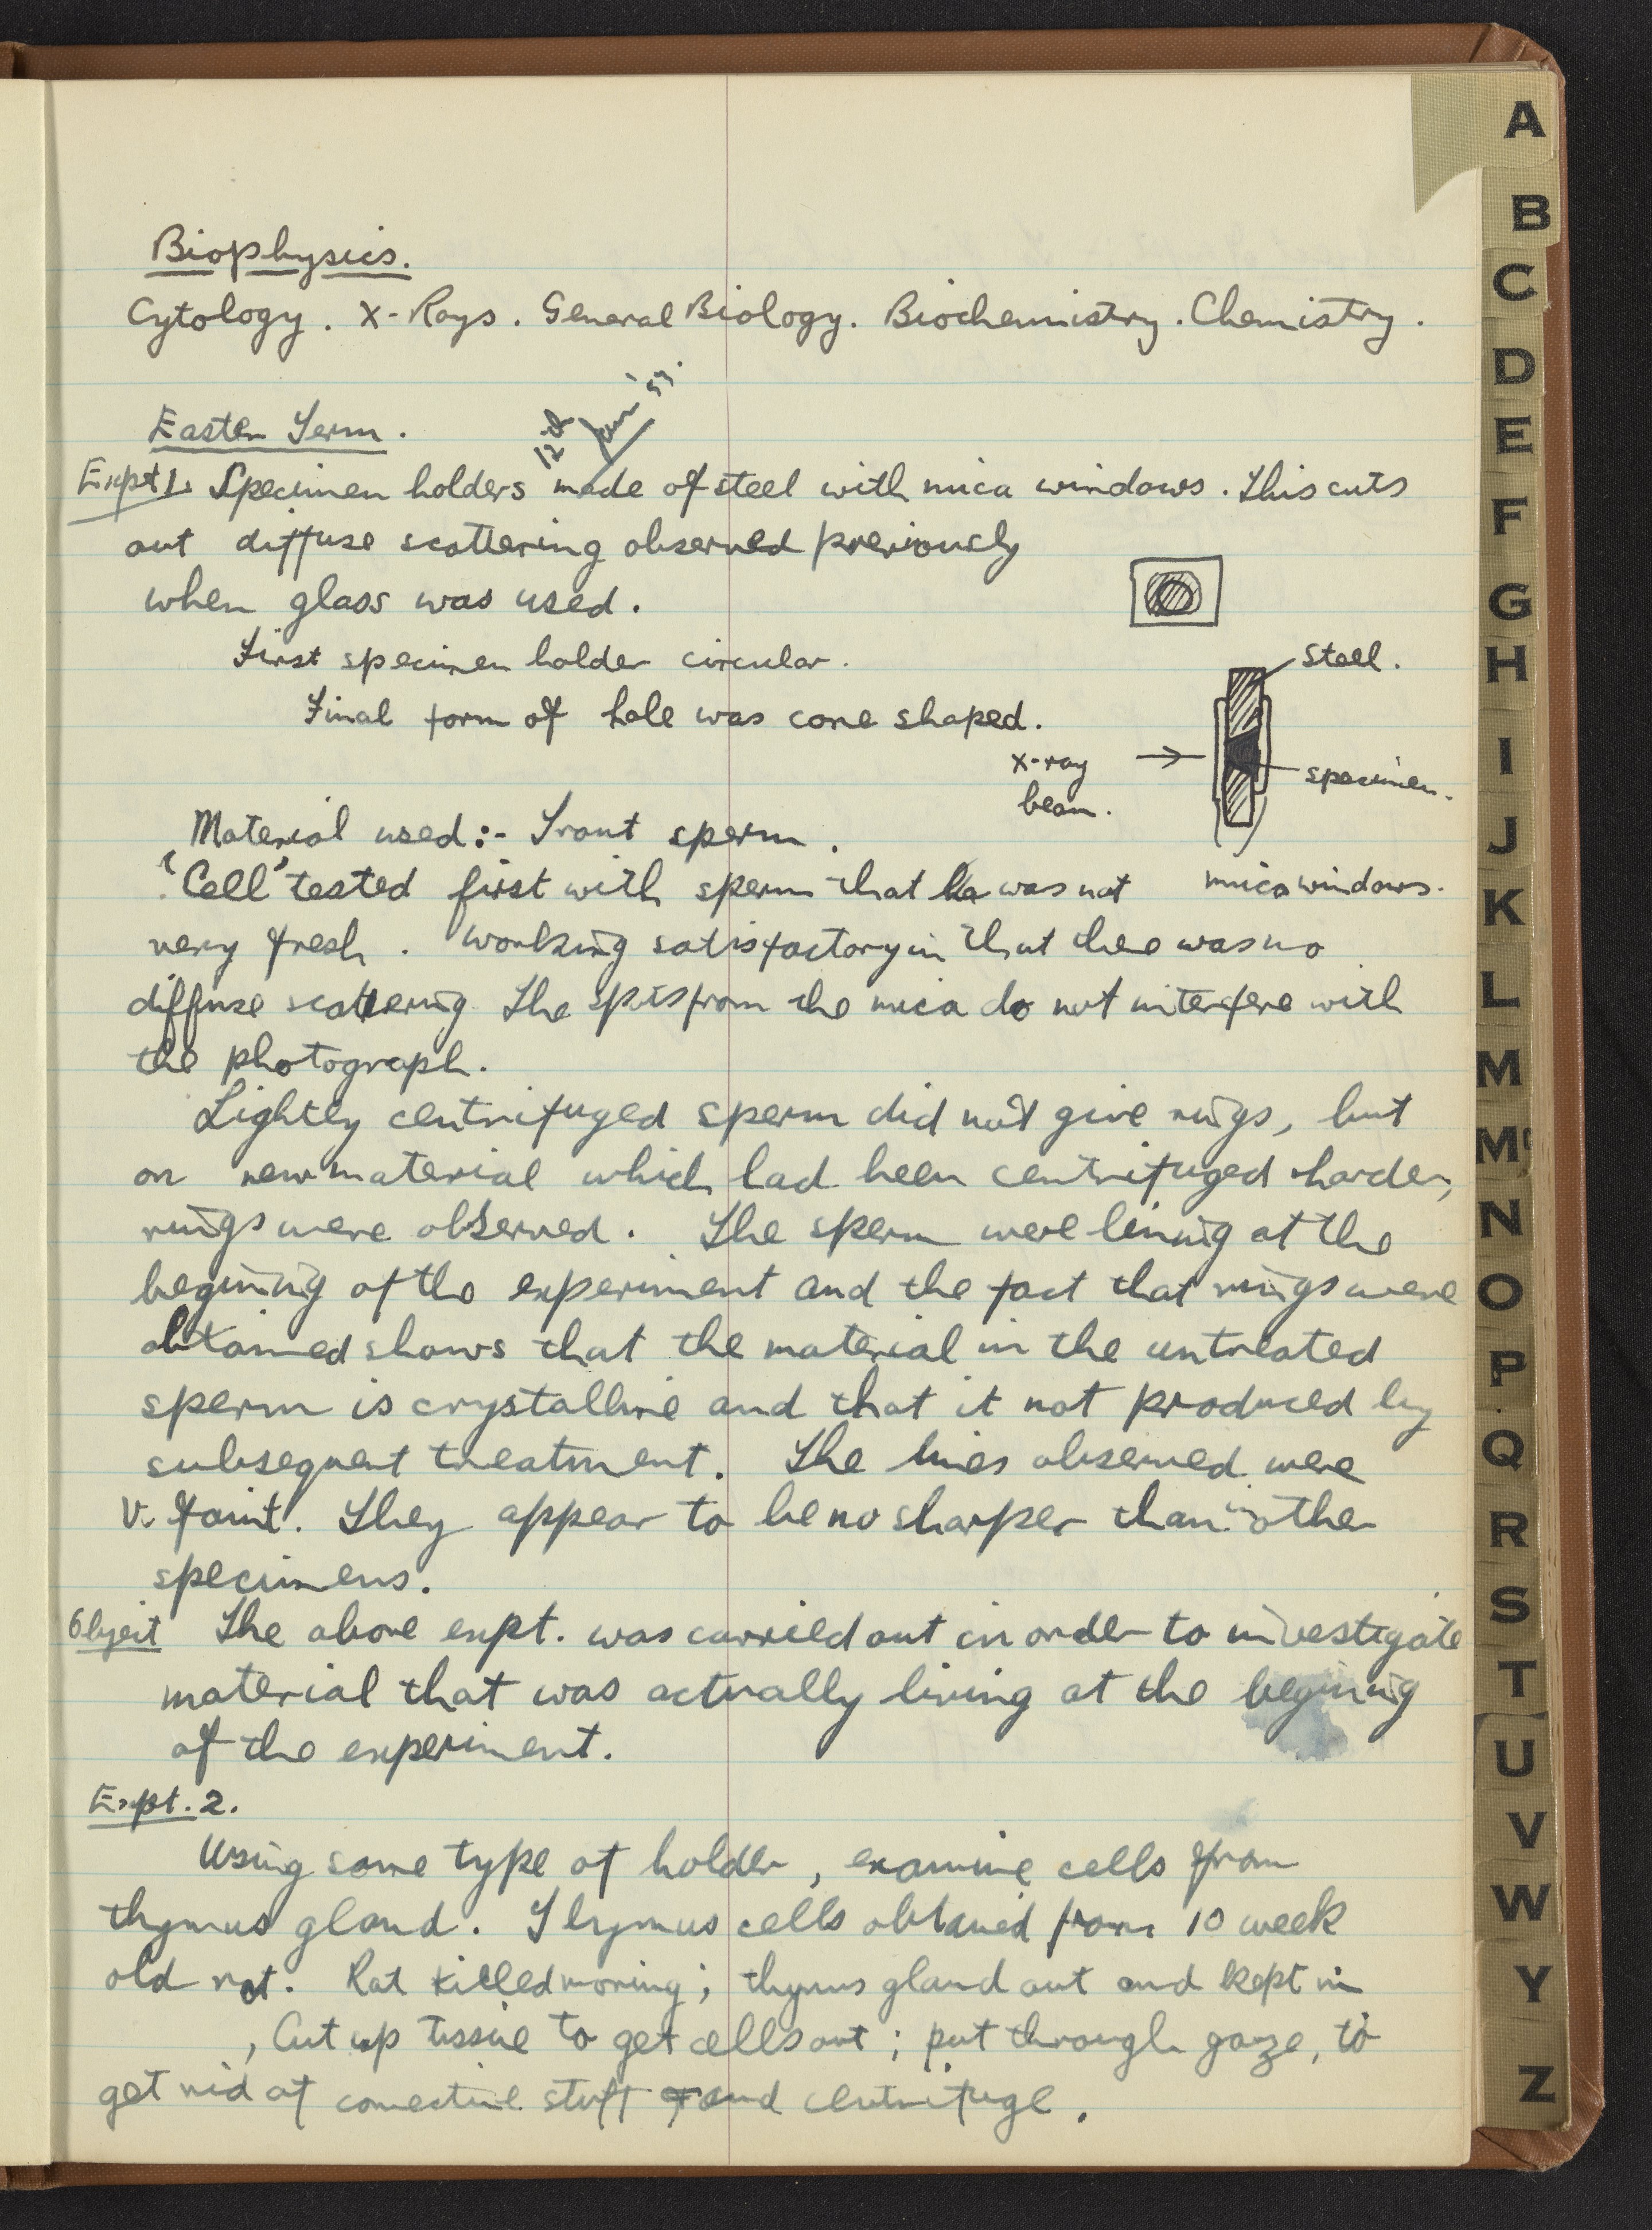 Biophysics.
Cytology. X-Rays. General Biology. Biochemistry. Chemistry.
Easter Term.
12th Jan '53.
Expt 1. Specimen holders made of steel with mica windows. This cuts
out diffuse scattering observed previously
when glass was used.
First specimen holder circular.
Final form of hole was cone shaped.
Steel.
X-ray
beam.
specimen.
mica windows.
Material used:- Trout sperm.
"Cell" tested first with sperm that was not
very fresh. Working satisfactory in that thee was no
diffuse scattering. The spots from the mica do not interfere with
the photograph.
Lightly centrifuged sperm did not give rings, but
on new material which had been centrifuged harder,
rings were observed. The sperm were living at the
begining of the experiment and the fact that rings were
obtained shows that the material in the untreated
sperm is crystalline and that it not produced by
subsequent treatment. The lines observed were
V. faint. They appear to be no sharper than in other
specimens.
Object The above expt. was carried out in order to investigate
material that was actually living at the begining
of the experiment.
Expt. 2.
Using same type of holder, examine cells from
thymus gland. Thymus cells obtained from 10 week
old rat. Rat killed morning; thymus gland out and kept in
, Cut up tissue to get cells out; put through gauze, to
get rid of connective stuff and centrifuge.
A
B
C
D
E
F
G
H
I
J
K
L
M
Mc
N
O
P
Q
R
S
T
U
V
W
Y
Z